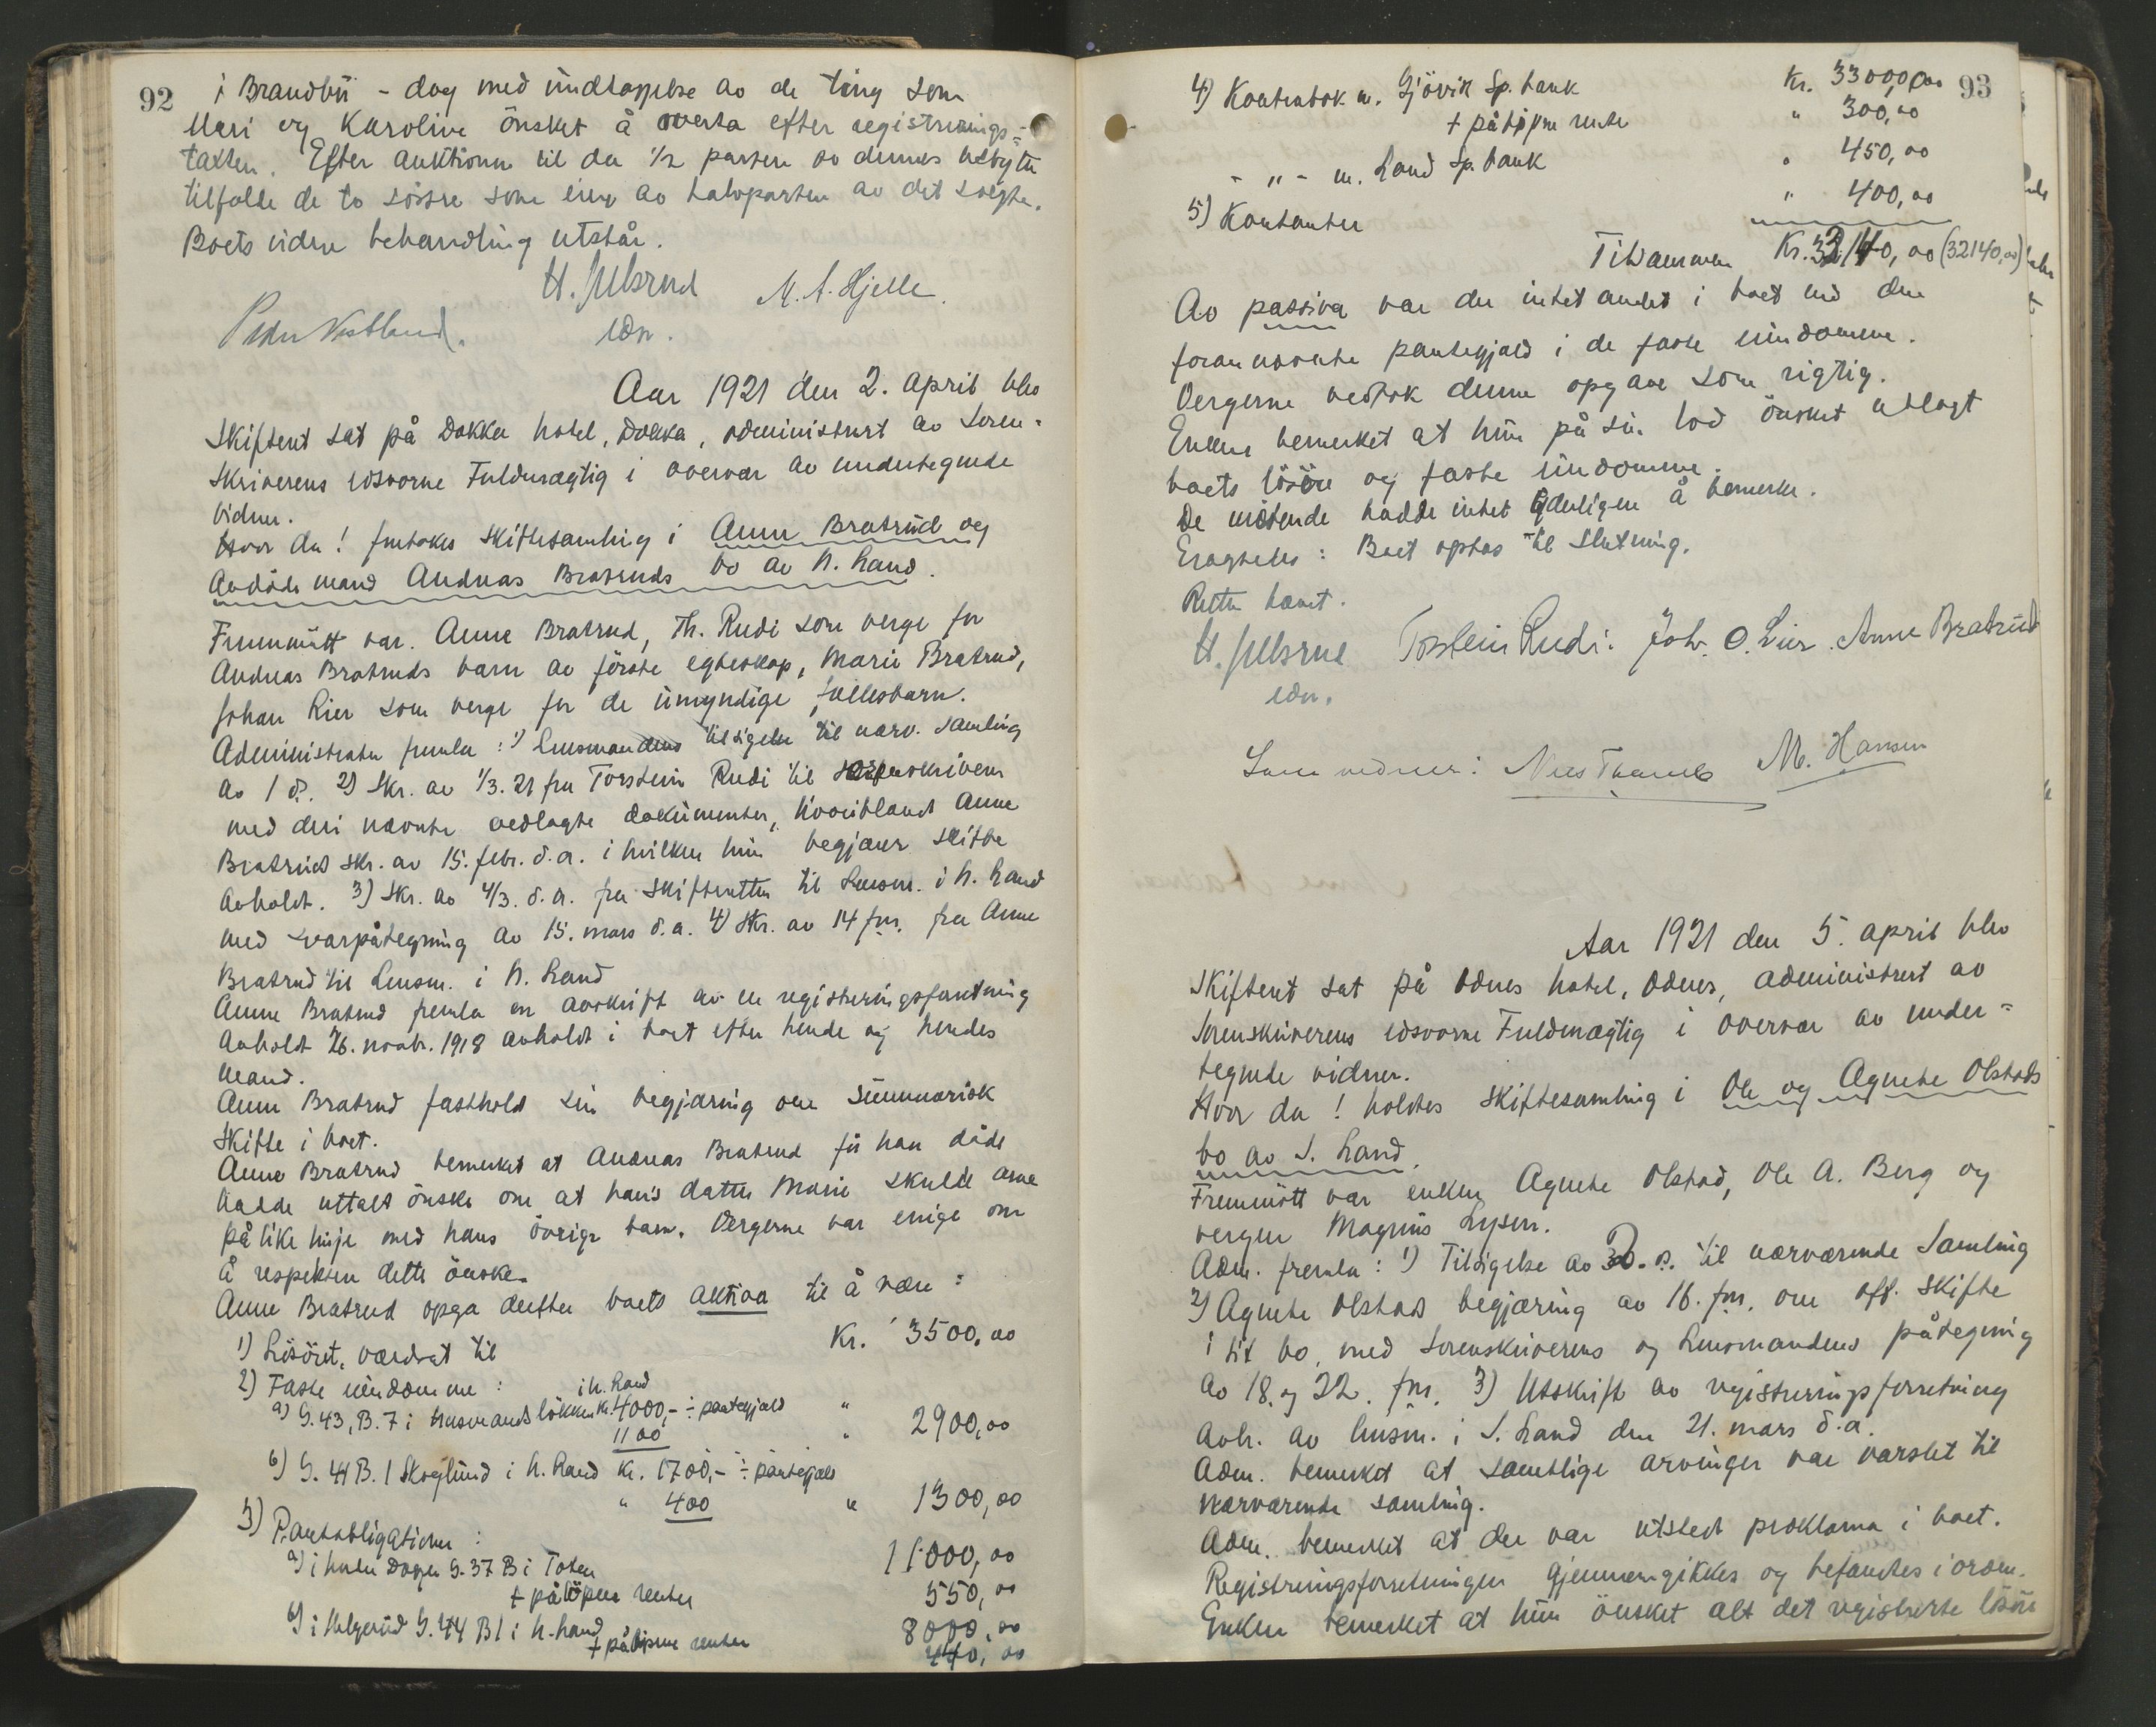 92
i Brandbu - dog med undtagelse av de ting som
Mari og Karoline önsket å overta efter registrerings-
taxten. Efter auktionen til da 1/2 parten av dennes utbytte
tilfalde de to söstre som eiere av halvparten av det solgte.
Boets videre behandling utstår.
H. Julsrud M. A. Hjelle.
Peder Vestland. edsv.
Aar 1921 den 2. april blev
Skifteret sat på Dokka hotel, Dokka, administrert av Soren-
skriverens edsvorne Fuldmægtig i overvær av undertegnede
vidner.
Hvor da! foretokes skiftesamling i Anne Bratrud og
avdöde mand Andreas Bratruds bo av N. Land.
Fremmött var. Anne Bratrud, Th. Rudi som verge for
Andreas Bratruds barn av förste egteskap, Marie Bratrud,
Johan Lier som verge for de umyndige fællesbarn.
Administrator fremla: 1) Lensmandens tilsigelse til nærv. samling
av 1 ds. 2) Skr. av 1/3. 21 fra Torstein Rudi til Sorenskriveren
med deri nævnte vedlagte dokumenter, hvoriblandt Anne
Bratruds skr. av 15. febr. d.a. i hvilken hun begjærer skifte
avholdt. 3) Skr. av 4/3. d.a. fra skifteretten til Lensm. i N. Land
med svarpåtegning av 15. mars d.a. 4) Skr. av 14 fm. fra Anne
Bratrud til Lensm. i N. Land
Anne Bratrud fremla en avskrift av en registreringsforretning
avholdt 26. novbr. 1918 avholdt i boet efter hende og hendes
mand.
Anne Bratrud fastholdt sin begjæring om summarisk
skifte i boet.
Anne Bratrud bemerket at Andreas Bratrud för han döde
hadde uttalt önske om at hans datter Marie skulde arve
på like linje med hans övrige barn. Vergerne var enige om
å respektere dette önske.
Anne Bratrud opga derefter boets aktiva til å være:
1) Lösöret, værdsat til Kr. 3500,00
2) Faste eiendomme: i N. Land
a) G. 43, B. 7 i Husmandslökken kr. 4000,- ÷ pantegjæld "
1100 " 2900,00
b) G. 44 B. 1 Skoglund i N. Land Kr. 1700,- ÷ pantegjæld
" 400 " 1300,00
3) Pantobligationer:
a) i G. 37 B i Toten 11000,00
+ påløpne renter 550,00
b) i Helgerud G. 44 B 1 i N. Land 8000,00
+ påløpne renter 440,00
93
4) Kontrabok m. Gjövik Sp.bank Kr. 33000,00
+ påløpne rente " 300,00
- " - m. Land Sp.bank " 450,00
5) Kontanter " 400,00
Tilsammen Kr. 32140,00 (32140,00)
Av passiva var der intet andet i boet end den
forannævnte pantegjæld i de faste eiendomme.
Vergerne vedtok denne opgave som rigtig.
Enken bemerket at hun på sin lod önsket utlagt
boets lösöre og faste eiendomme.
De mötende hadde intet yderligere å bemerke.
Eragtedes: Boet optas til slutning.
Retten hævet.
H. Julsrud Torstein Rudi. Joh. O. Lier. Anne Bratrud
edsv.
Som vidner: Nils M. Hansen
Aar 1921 den 5. april blev
Skifteret sat på Odnes hotel, Odnes, administrert av
Sorenskriverens edsvorne Fuldmægtig i overvær av under-
tegnede vidner.
Hvor da! holdtes skiftesamling i Ole og Agnete Olstads
bo av S. Land.
Fremmött var enken Agnete Olstad, Ole A. Berg og
vergen Magnus Lysen.
Adm. fremla: 1) Tilsigelse av 30. s. til nærværende samling
2) Agnete Olstads begjæring av 16. fm. om off. skifte
i sit bo, med Sorenskriverens og Lensmandens påtegning
av 18. og 22. fm. 3) Utskrift av registreringsforretning
avh. av lensm. i S. Land den 21. mars d.a.
Adm. bemerket at samtlige arvinger var varslet til
nærværende samling.
Adm. bemerket at der var utstedt proklama i boet.
Registreringsforretningen gjennemgikkes og befandtes i orden.
Enken bemerket at hun önsket alt det registrerte lösöre